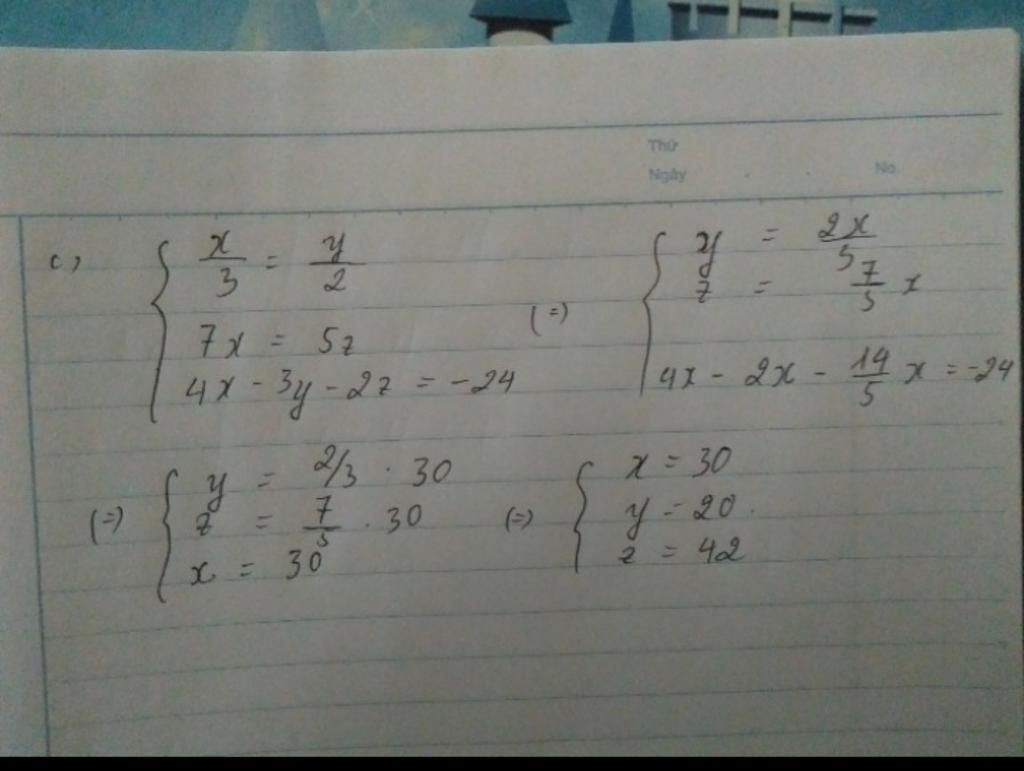 Thứ
Ngày No.
c, { x/3 = y/2
7x = 5z
4x - 3y - 2z = -24
(=) { y = 2x/5
z = 7/5 x
4x - 2x - 14/5 x = -24
(=) { y = 2/3 . 30
z = 7/5 . 30
x = 30
(=) { x = 30
y = 20.
z = 42